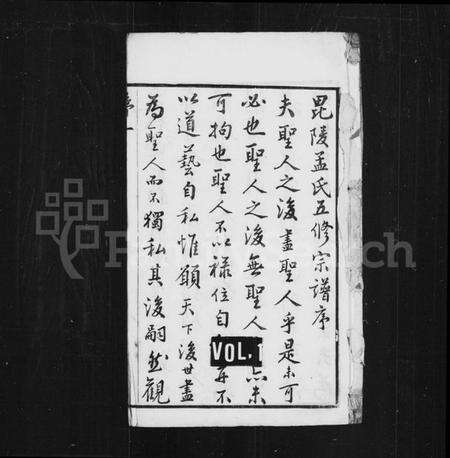 毘陵孟氏五修宗譜序
夫聖人之後盡聖人乎是未可
必也聖人之後無聖人亦未
可拘也聖人不以祿位自不
以道藝自私惟願天下後世盡
為聖人而不獨私其後嗣然觀
序一
VOL. 1
FamilySearch